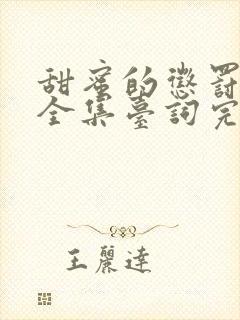 甜蜜的懲罰
全集臺詞完
王麗達